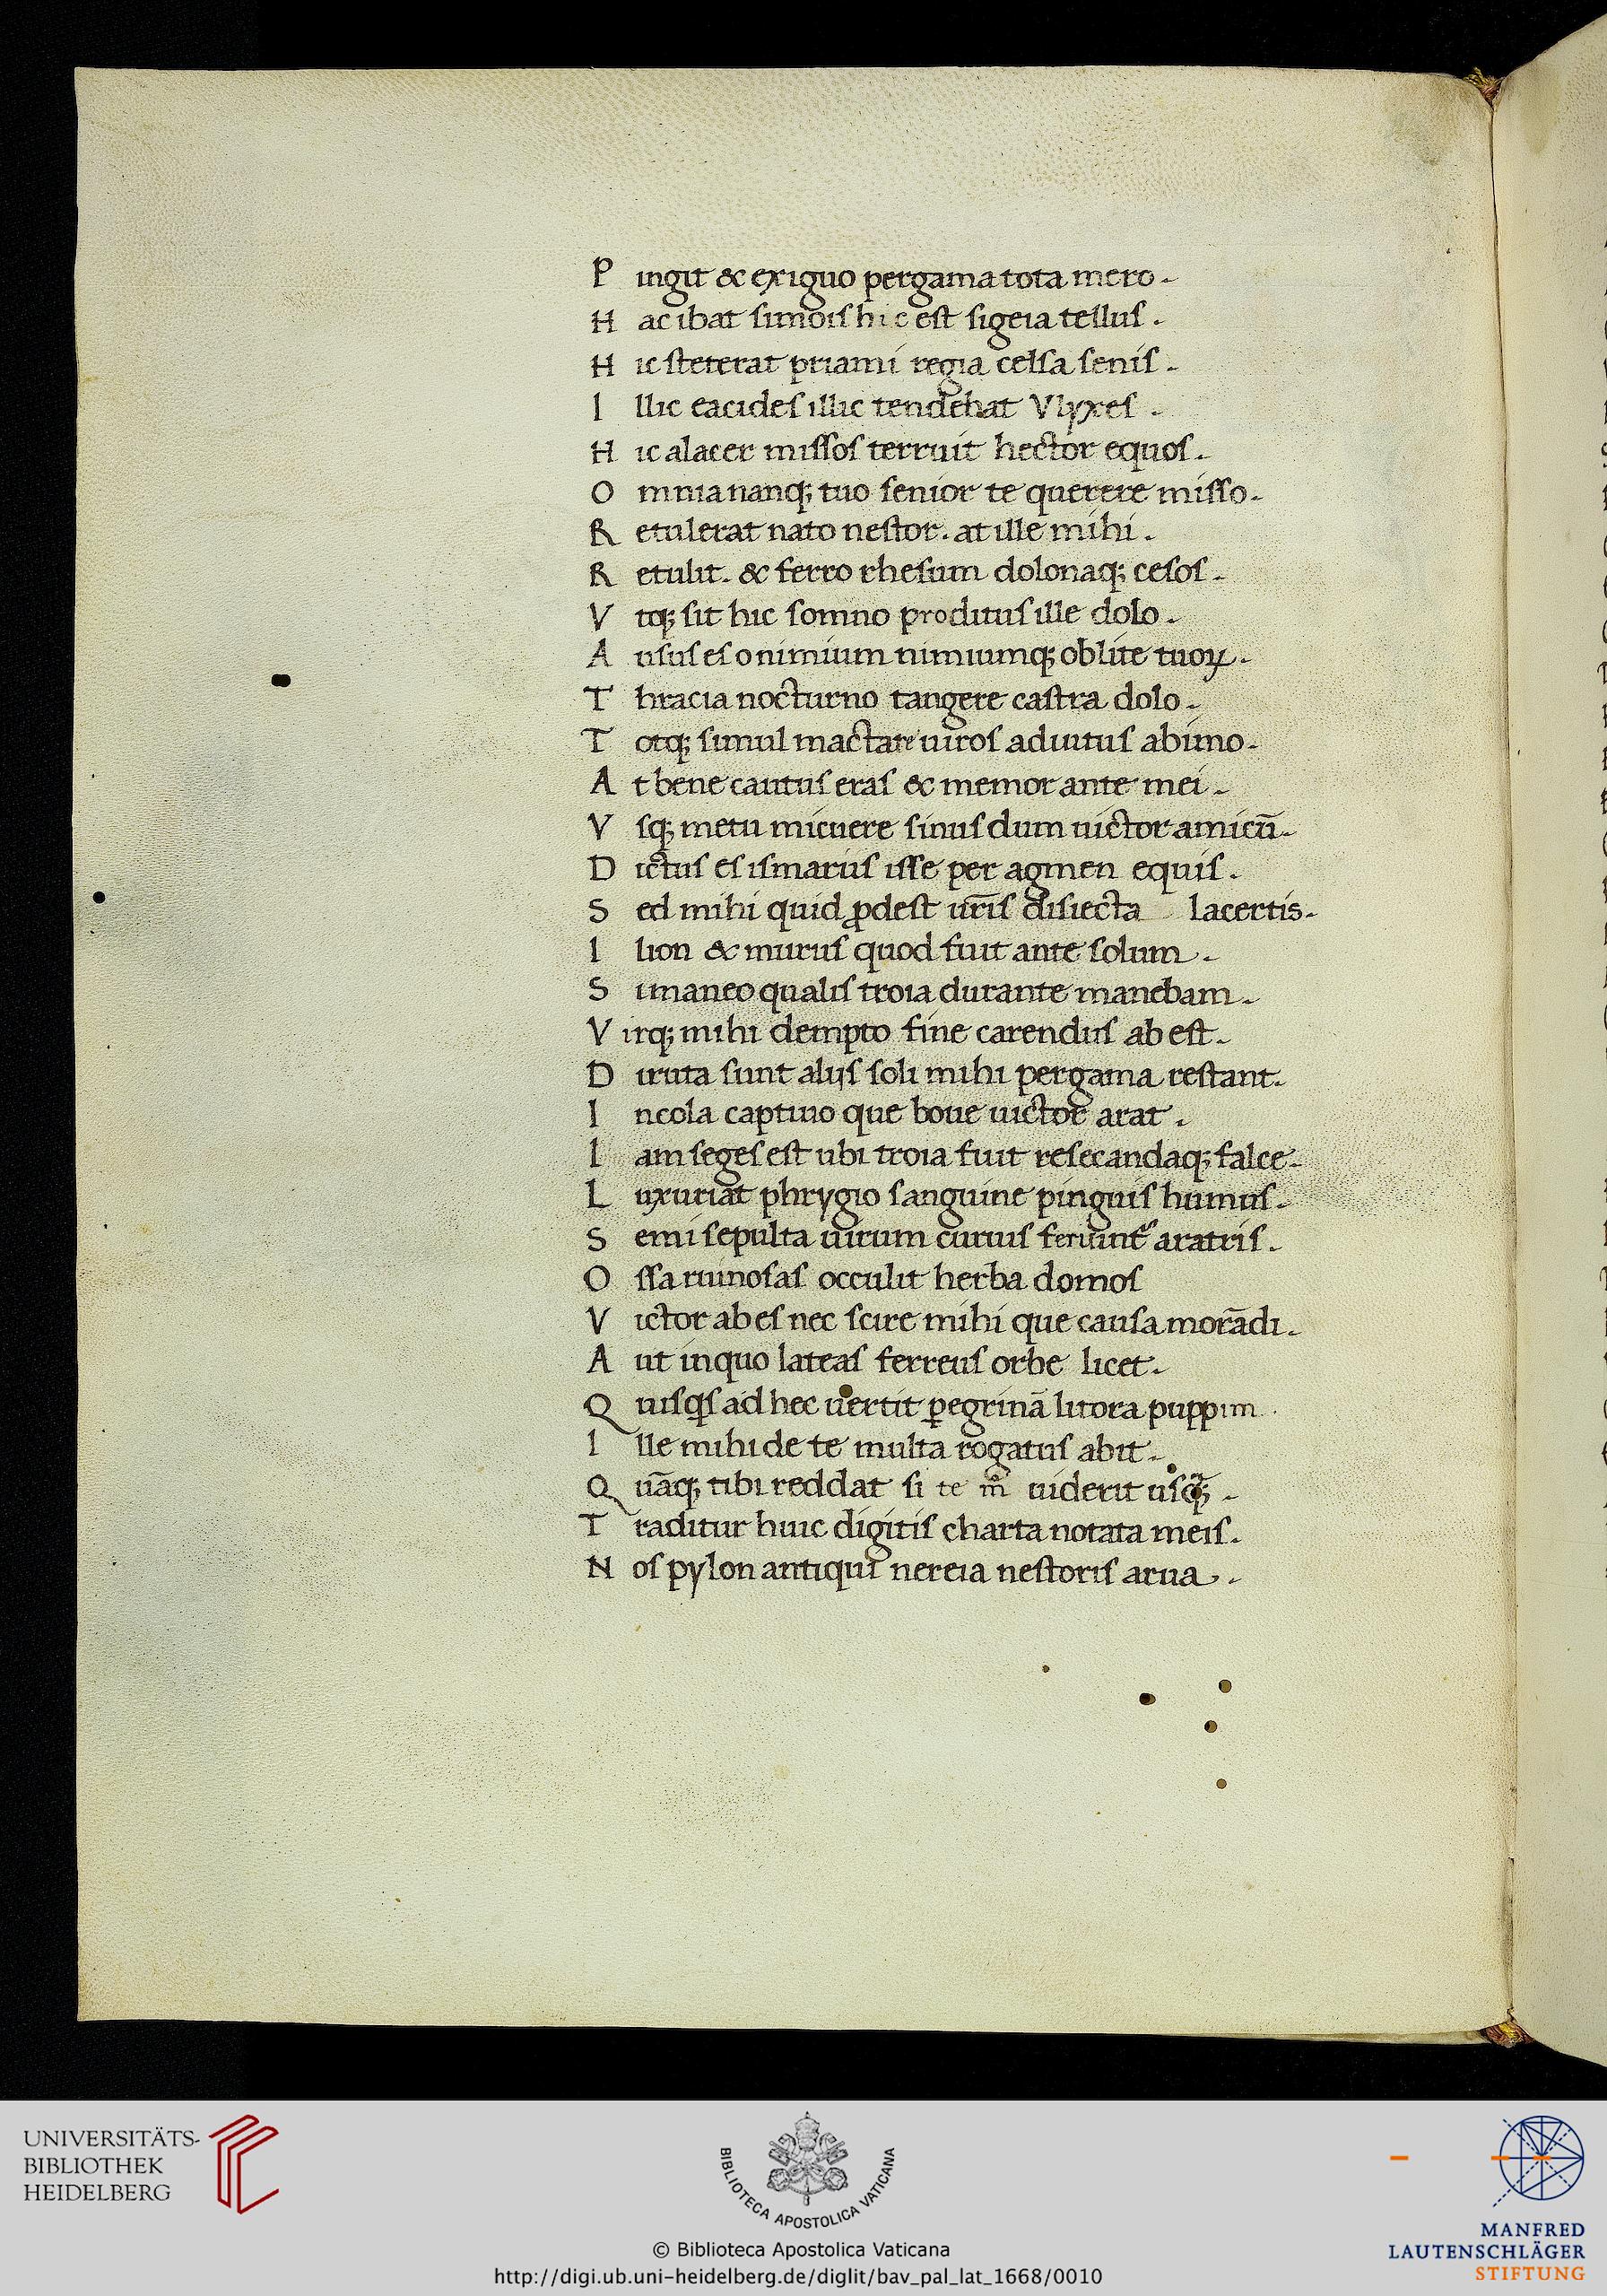 P ingit & exiguo pergama tota mero.
H ac ibat simois hic est sigeia tellus.
H ic steterat priami regia celsa senis.
I llic eacides illic tendebat Vlyxes.
H ic alacer missos terruit hector equos.
O mnia nanq; tuo senior te querere misso.
R etulerat nato nestor. at ille mihi.
R etulit. & ferro rhesum dolonaq; cesos.
V tq; sit hic somno proditus ille dolo.
A usus es o nimium nimiumq; oblite tuoꝝ.
T hracia nocturno tangere castra dolo.
T otq; simul mactare uiros adiutus ab imo.
A t bene cautus eras & memor ante mei.
V sq; metu micuere sinus dum uictor amicū.
D ictus es ismariis isse per agmen equis.
S ed mihi quid ꝓdest ur̄is disiecta lacertis.
I lion & murus quod fuit ante solum.
S i maneo qualis troia durante manebam.
V irq; mihi dempto fine carendus abest.
D iruta sunt alijs soli mihi pergama restant.
I ncola captiuo que boue uictor arat.
I am seges est ubi troia fuit resecandaq; falce.
L uxuriat phrygio sanguine pinguis humus.
S emisepulta uirum curuis feriunt^r aratris.
O ssa ruinosas occulit herba domos
V ictor abes nec scire mihi que causa morādi.
A ut in quo lateas ferreus orbe licet.
Q uisq̄s ad hec uertit ꝑegrinā litora puppim.
I lle mihi de te multa rogatus abit.
Q uāq; tibi reddat si te m̊ uiderit usq̄;.
T raditur huic digitis charta notata meis.
N os pylon antiqui nereia nestoris arua.
UNIVERSITÄTS-
BIBLIOTHEK
HEIDELBERG
BIBLIOTECA APOSTOLICA VATICANA
© Biblioteca Apostolica Vaticana
http://digi.ub.uni-heidelberg.de/diglit/bav_pal_lat_1668/0010
MANFRED
LAUTENSCHLÄGER
STIFTUNG